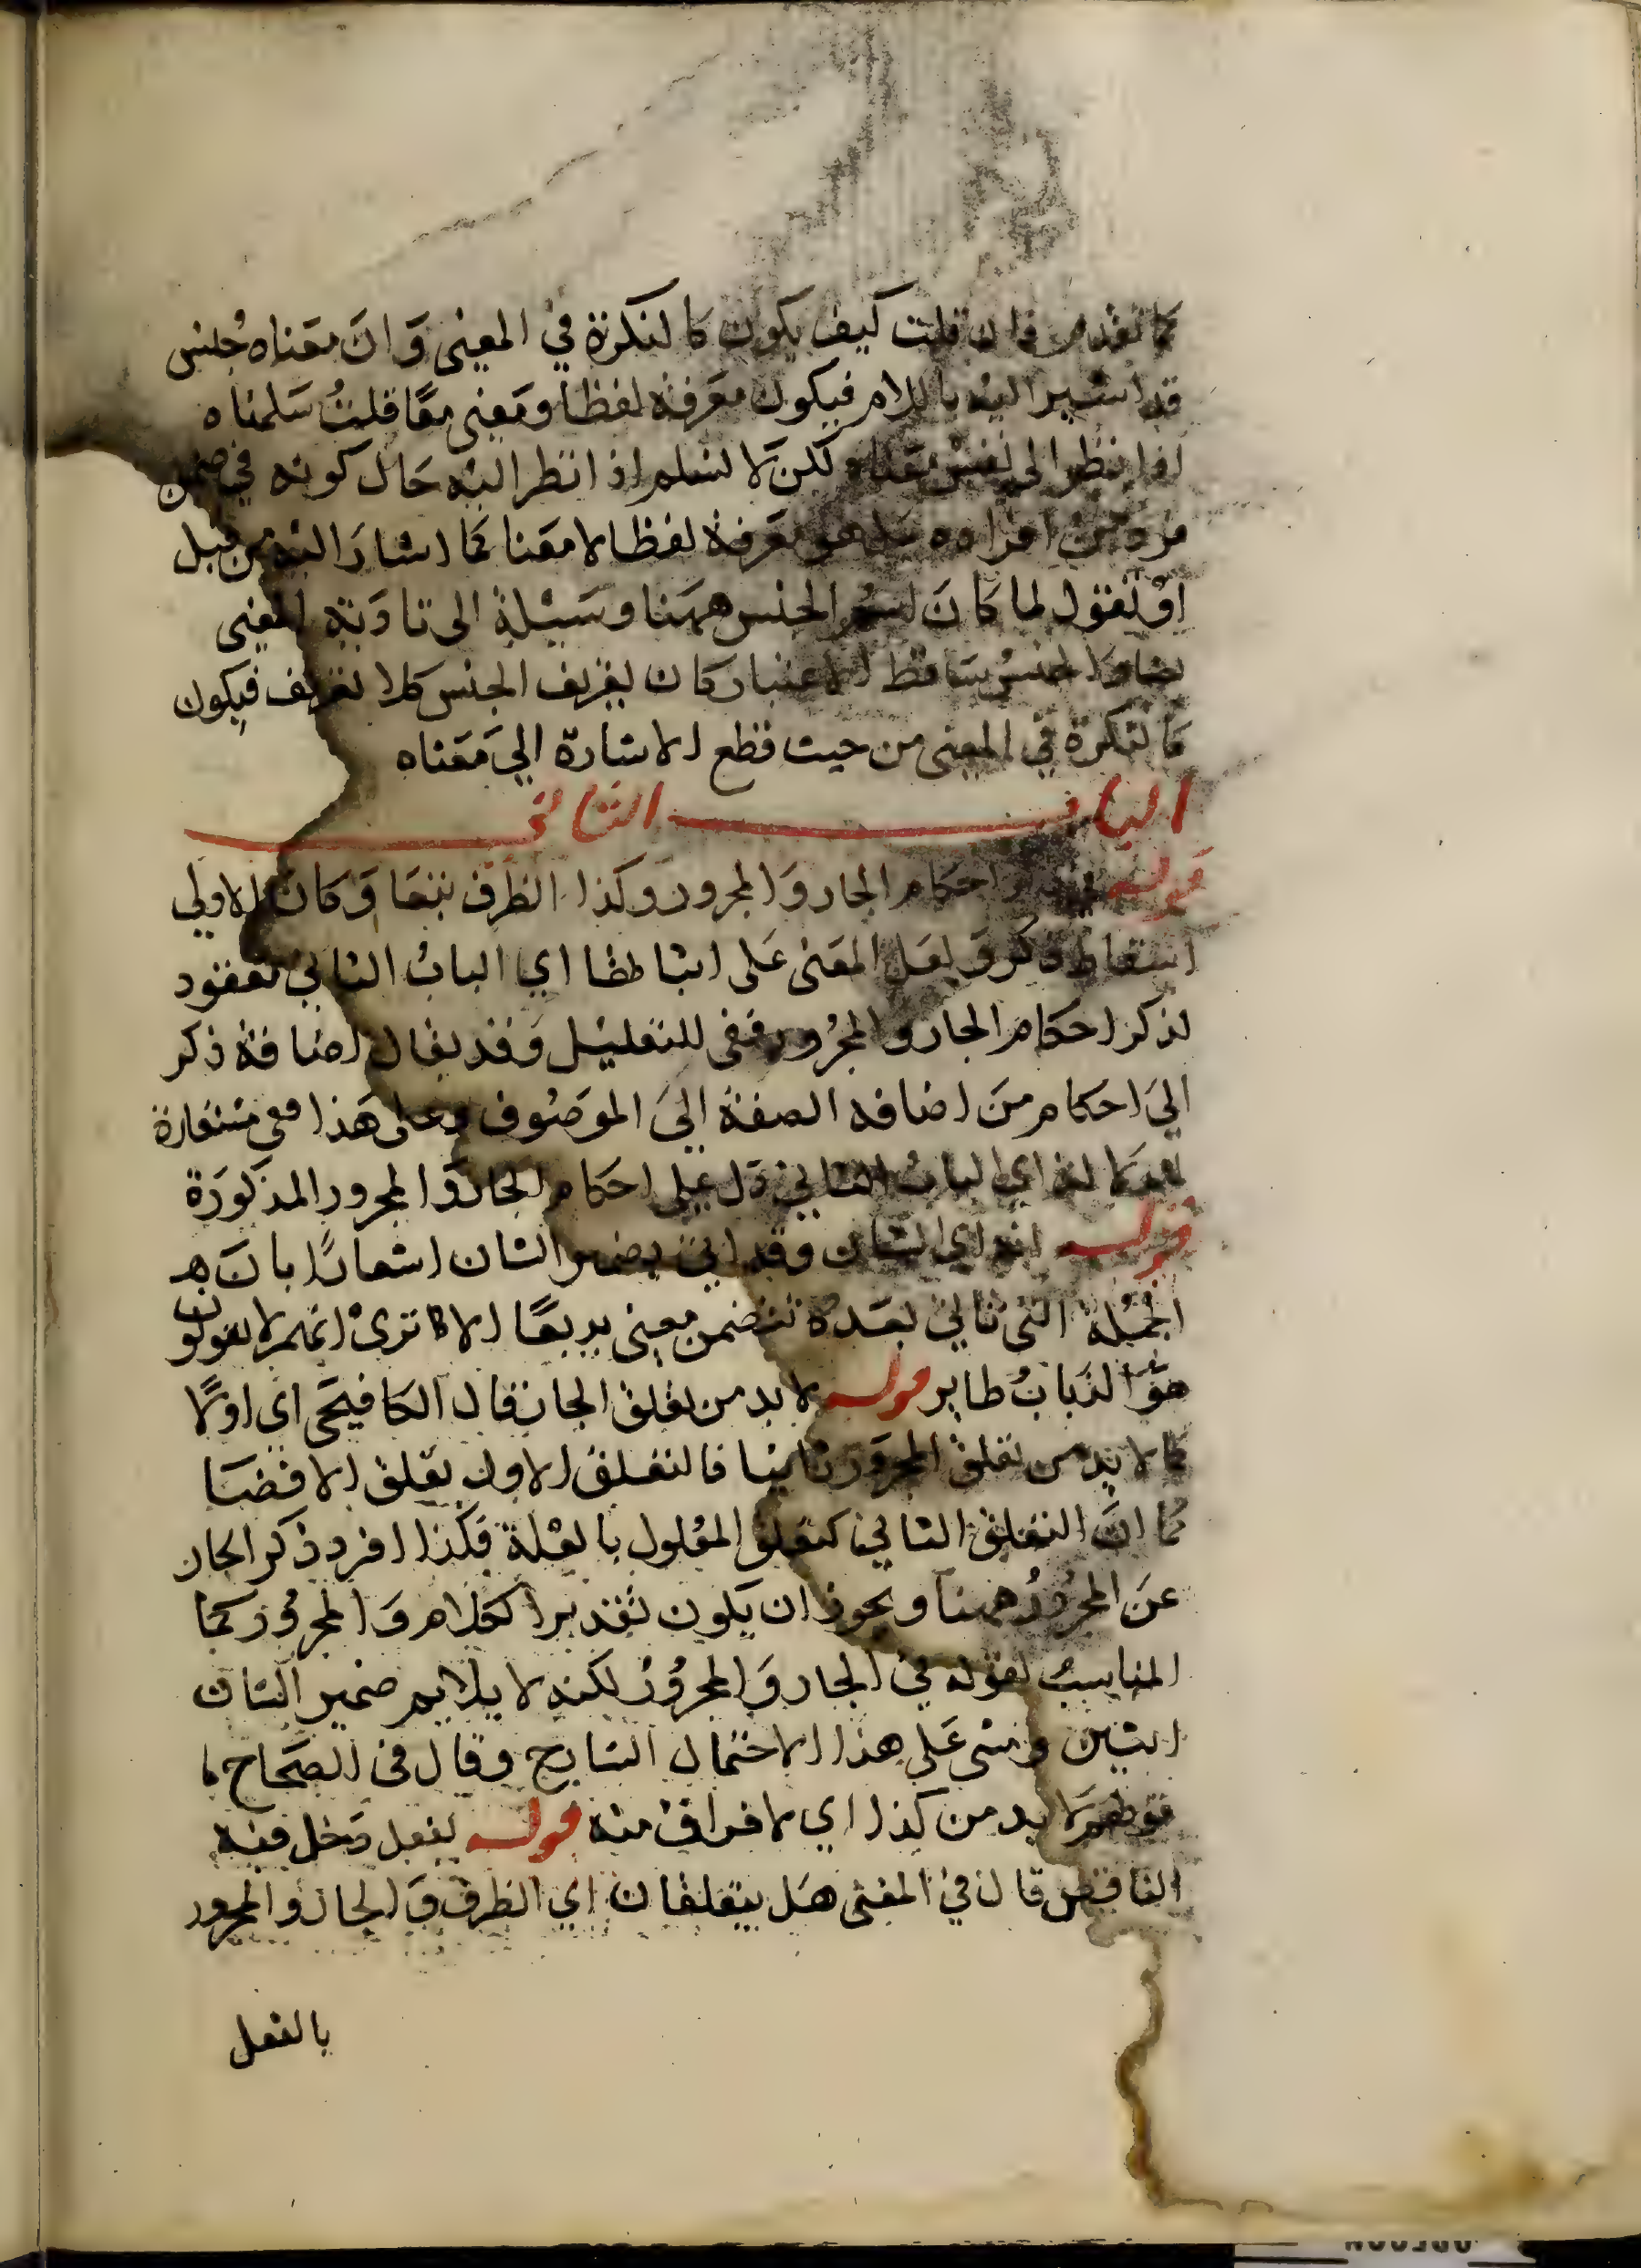 كما تقدم فان قلت كيف يكون كالنكرة في المعنى وان معناه جنس
قد اشير اليه باللام فيكون معرفة لفظا ومعنى معًا قلتُ سلمناه
اذا نظر الى نفس معناه لكن لا نسلم اذا نظر اليه حال كونه في ضمن
فرد من افراده بل هو معرفة لفظا لا معنا كما اشار اليه من قبل
او نقول لما كان اسم الجنس ههنا وسيلة الى تادية المعنى
الجنس ساقط الاعتبار كان تعريف الجنس كلا تعريف فيكون
كالنكرة في المعنى من حيث قطع الاشارة الى معناه
الباب الثاني
قوله في ذكر احكام الجار والمجرور وكذا الظرف تبعا وكان الاولى
اسقاط ذكر ولعل المعنى على اثباطها اي الباب الثاني معقود
لذكر احكام الجار والمجرور ففى للتعليل وقد يقال اضافة ذكر
الى احكام من اضافه الصفة الى الموصوف وعلى هذا فهى مستعارة
اي الباب الثاني دل على احكام الجار والمجرور المذكورة
قوله انه اي الشان وقد اتى بضمير الشان اشعارًا بان هـ
الجملة التى تاتي بعده تتضمن معنى بديعًا الا كا ترى انهم لا يقولون
هو الذباب طاير قوله لا بد من تعلق الجار قال الكافيجى اى اولًا
كما لا بد من تعلق المجرور ثانيا فالتعلق الاول تعلق الافضا
كما ان التعلق الثاني كتعلق المعلول بالعلة فكذا افرد ذكر الجار
عن المجرور ههنا ويجوز ان يكون تقدير الكلام والمجرور كما
المناسب لقوله في الجار والمجرور لكنه لا يلايم ضمير الشان
اثنين ومشى على هذا الاحتمال الشارح وقال فى الصحاح
قوطهم لا بد من كذا اي لا فراق منه قوله بفعل دخل فيه
الناقص قال في المغنى هل يتعلقان اي الظرف والجار والمجرور
بالفعل